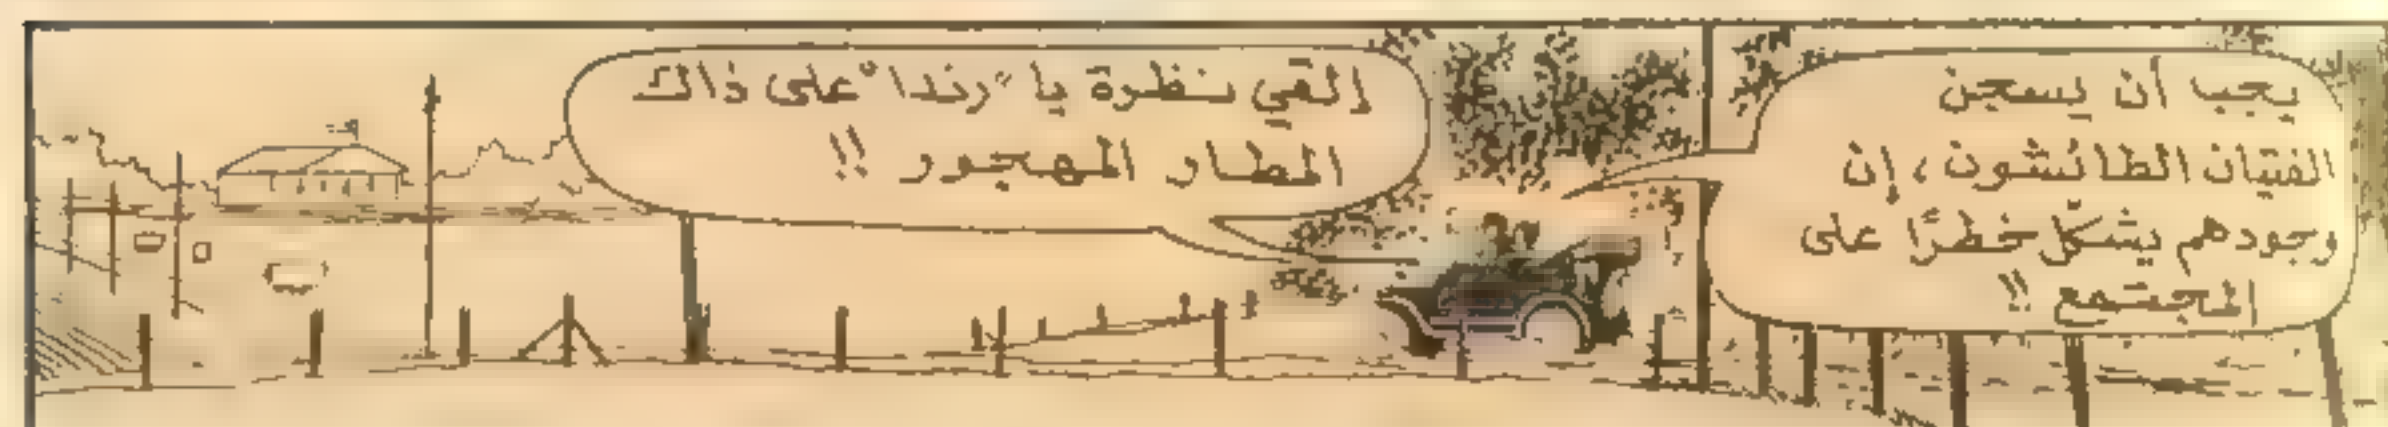 يجب أن يسجن
الفتيان الطائشون، إن
وجودهم يشكّل خطرًا على
المجتمع !!
إلقي نظرة يا "رندا" على ذاك
المطار المهجور !!